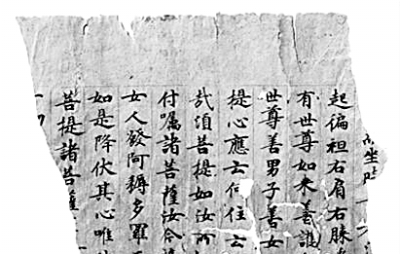 坐時
起徧袒右肩右膝
有世尊如来善護
世尊善男子善女
提心應云何住云
哉須菩提如汝所
付囑諸菩薩汝今諦
女人發阿耨多羅
如是降伏其心唯
菩提諸菩薩